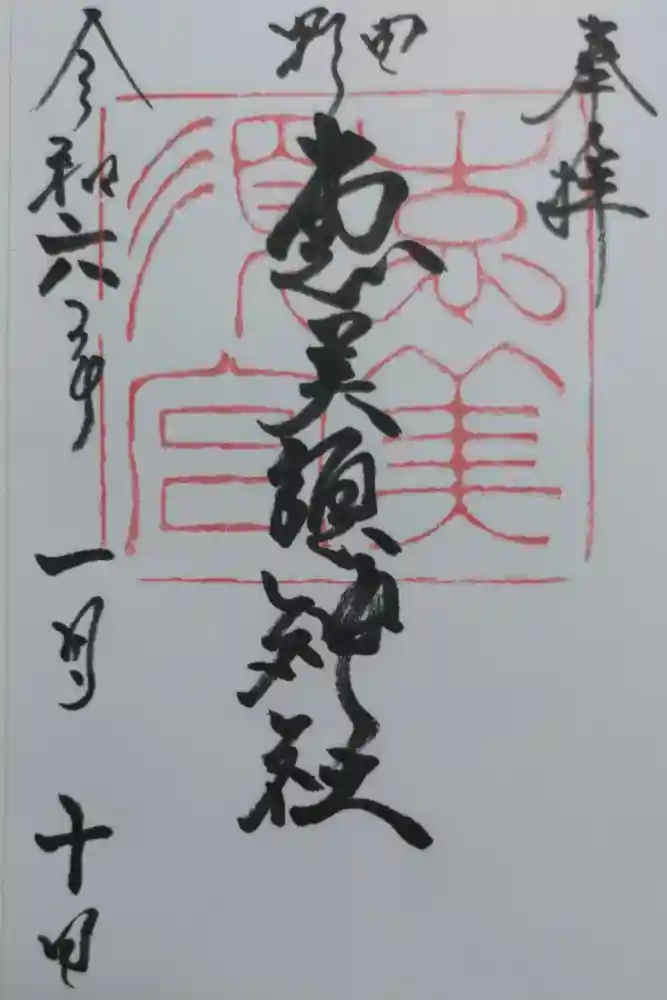 奉拝
野田
恵美須神社
令和六年一月十日
恵美
須宮